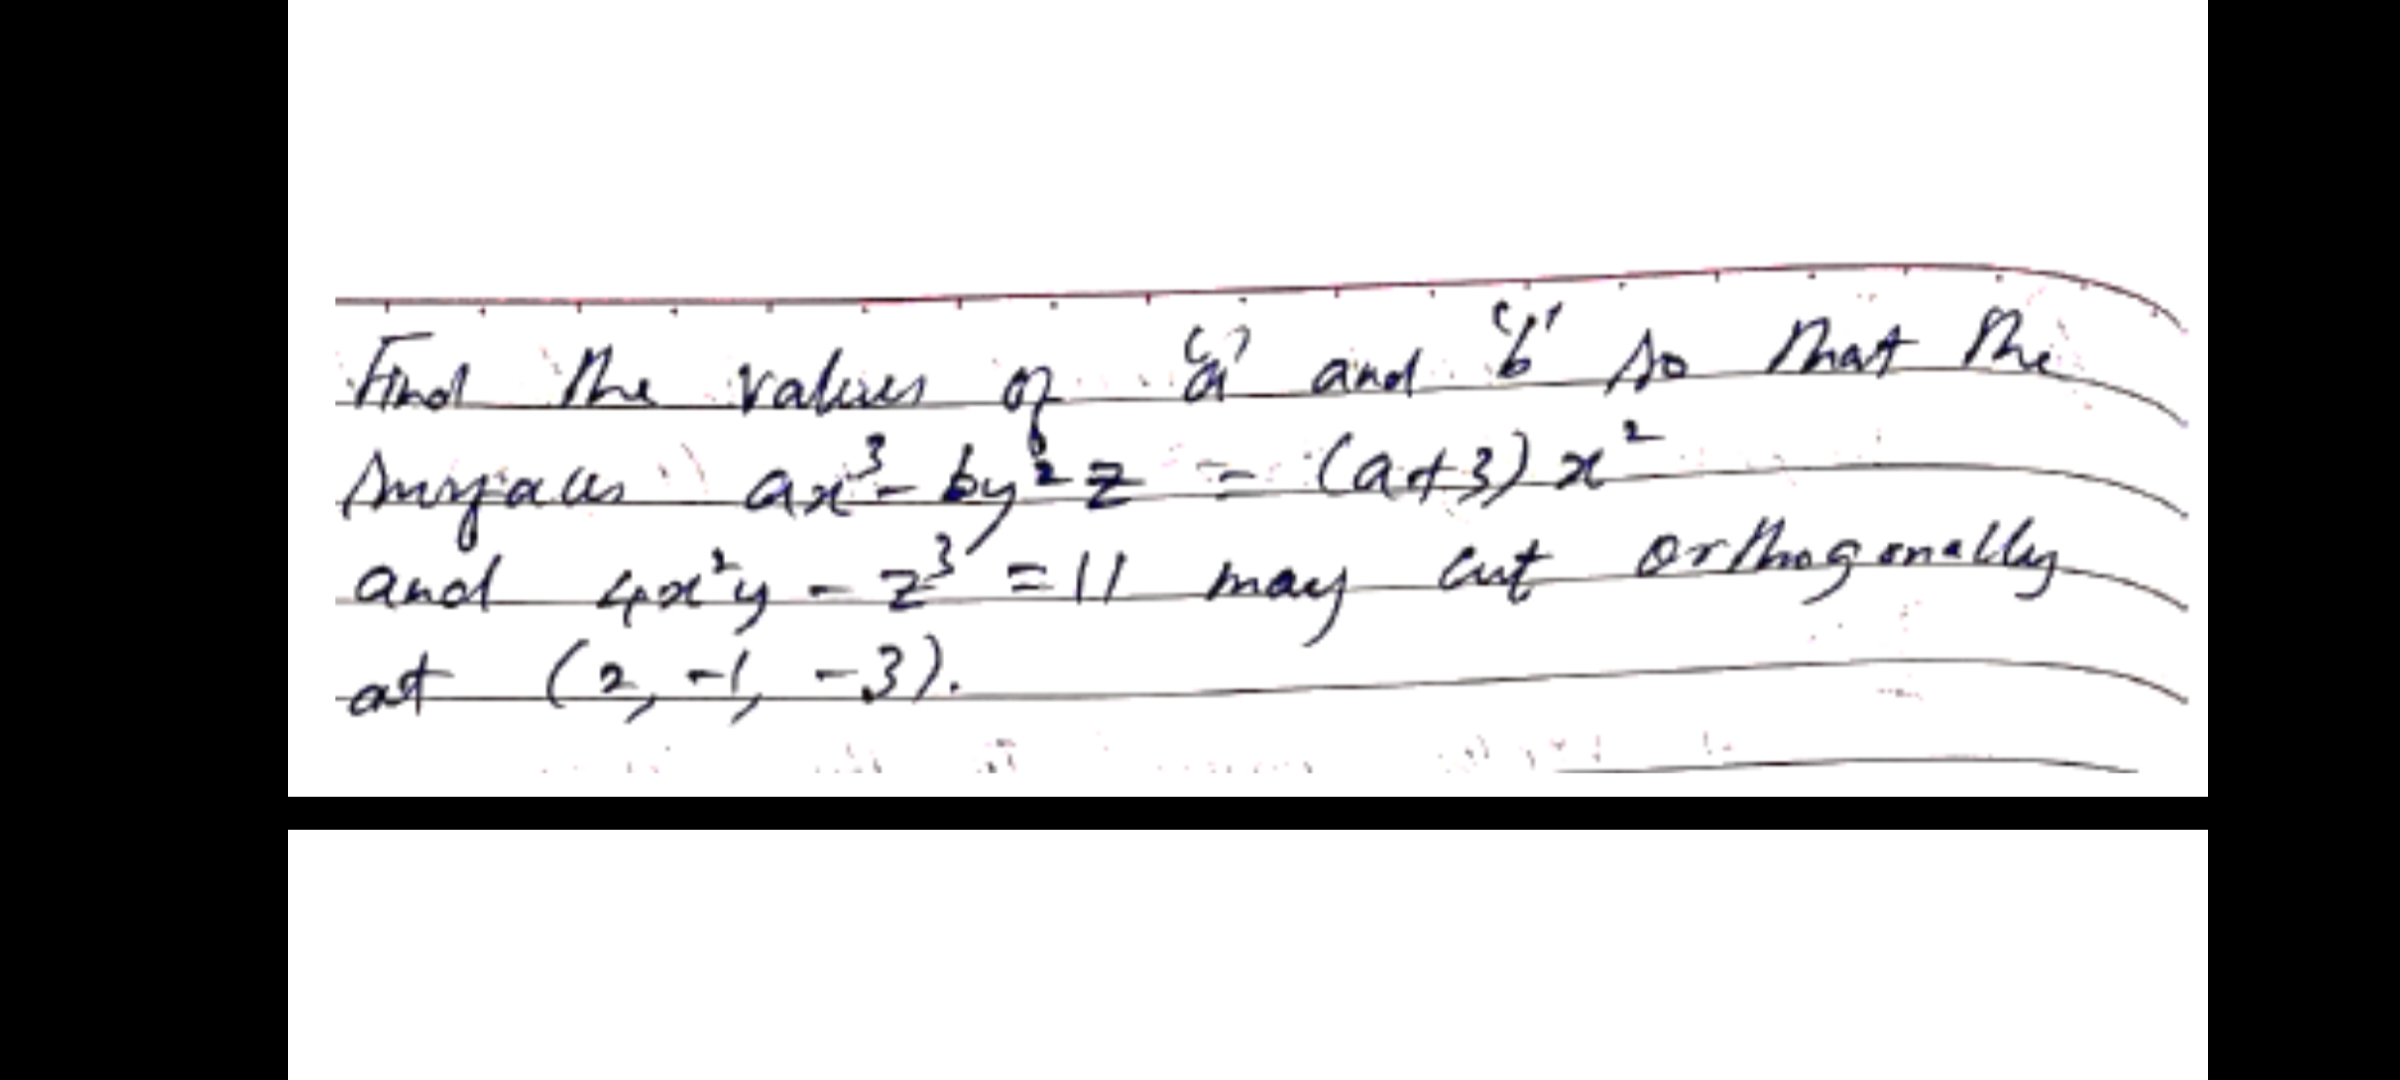 Find the values of 'a' and 'b' so that the
surfaces ax³ - by²z = (a+3)x²
and 4x²y - z³ = 11 may cut orthogonally
at (2, -1, -3).